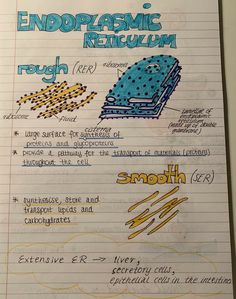 ENDOPLASMIC
RETICULUM
rough (RER)
ribosome
ribosome
fluid
cisterna
lumen of
endoplasmic
reticulum
(made up of double
membrane)
* large surface for synthesis of
proteins and glycoproteins
* provide a pathway for the transport of materials (proteins)
throughout the cell
smooth (SER)
* synthesise, store and
transport lipids and
carbohydrates
Extensive ER → liver,
secretory cells,
epithelial cells in the intestines